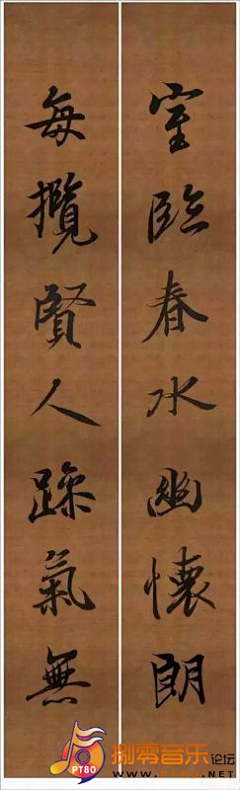 室臨春水幽懷朗
每攬賢人躁氣無
PT80
捌零音乐论坛